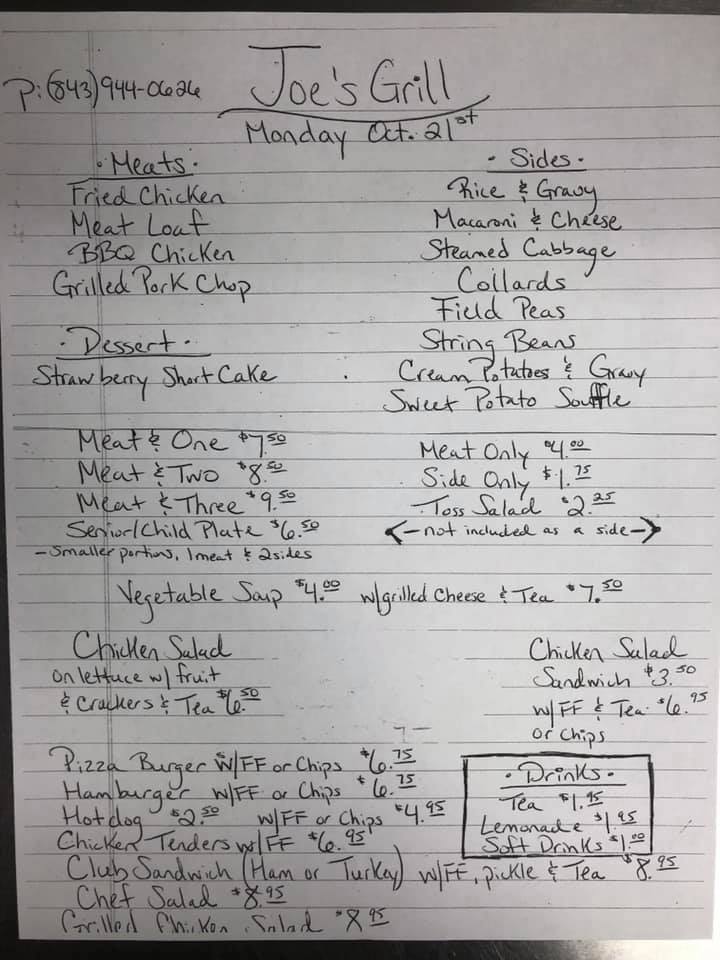 Joe's Grill
P: (843) 944-0626
Monday Oct. 21st
· Meats ·
Fried Chicken
Meat Loaf
BBQ Chicken
Grilled Pork Chop
· Dessert ·
Strawberry Short Cake
· Sides ·
Rice & Gravy
Macaroni & Cheese
Steamed Cabbage
Collards
Field Peas
String Beans
Cream Potatoes & Gravy
Sweet Potato Souffle
Meat & One $7.50
Meat & Two $8.50
Meat & Three $9.50
Senior/Child Plate $6.50
- Smaller portions, 1 meat & 2 sides
Meat Only $4.00
Side Only $1.75
Toss Salad $2.25
<- not included as a side ->
Vegetable Soup $4.00 w/grilled Cheese & Tea $7.50
Chicken Salad
on lettuce w/ fruit
& Crackers & Tea $6.50
Chicken Salad
Sandwich $3.50
w/FF & Tea $6.95
or chips
Pizza Burger w/FF or Chips $6.75
Hamburger w/FF or Chips $6.75
Hotdog $2.50 w/FF or Chips $4.95
Chicken Tenders w/FF $6.95
· Drinks ·
Tea $1.95
Lemonade $1.95
Soft Drinks $1.00
Club Sandwich (Ham or Turkey) w/FF, pickle & Tea $8.95
Chef Salad $8.95
Grilled Chicken Salad $8.95